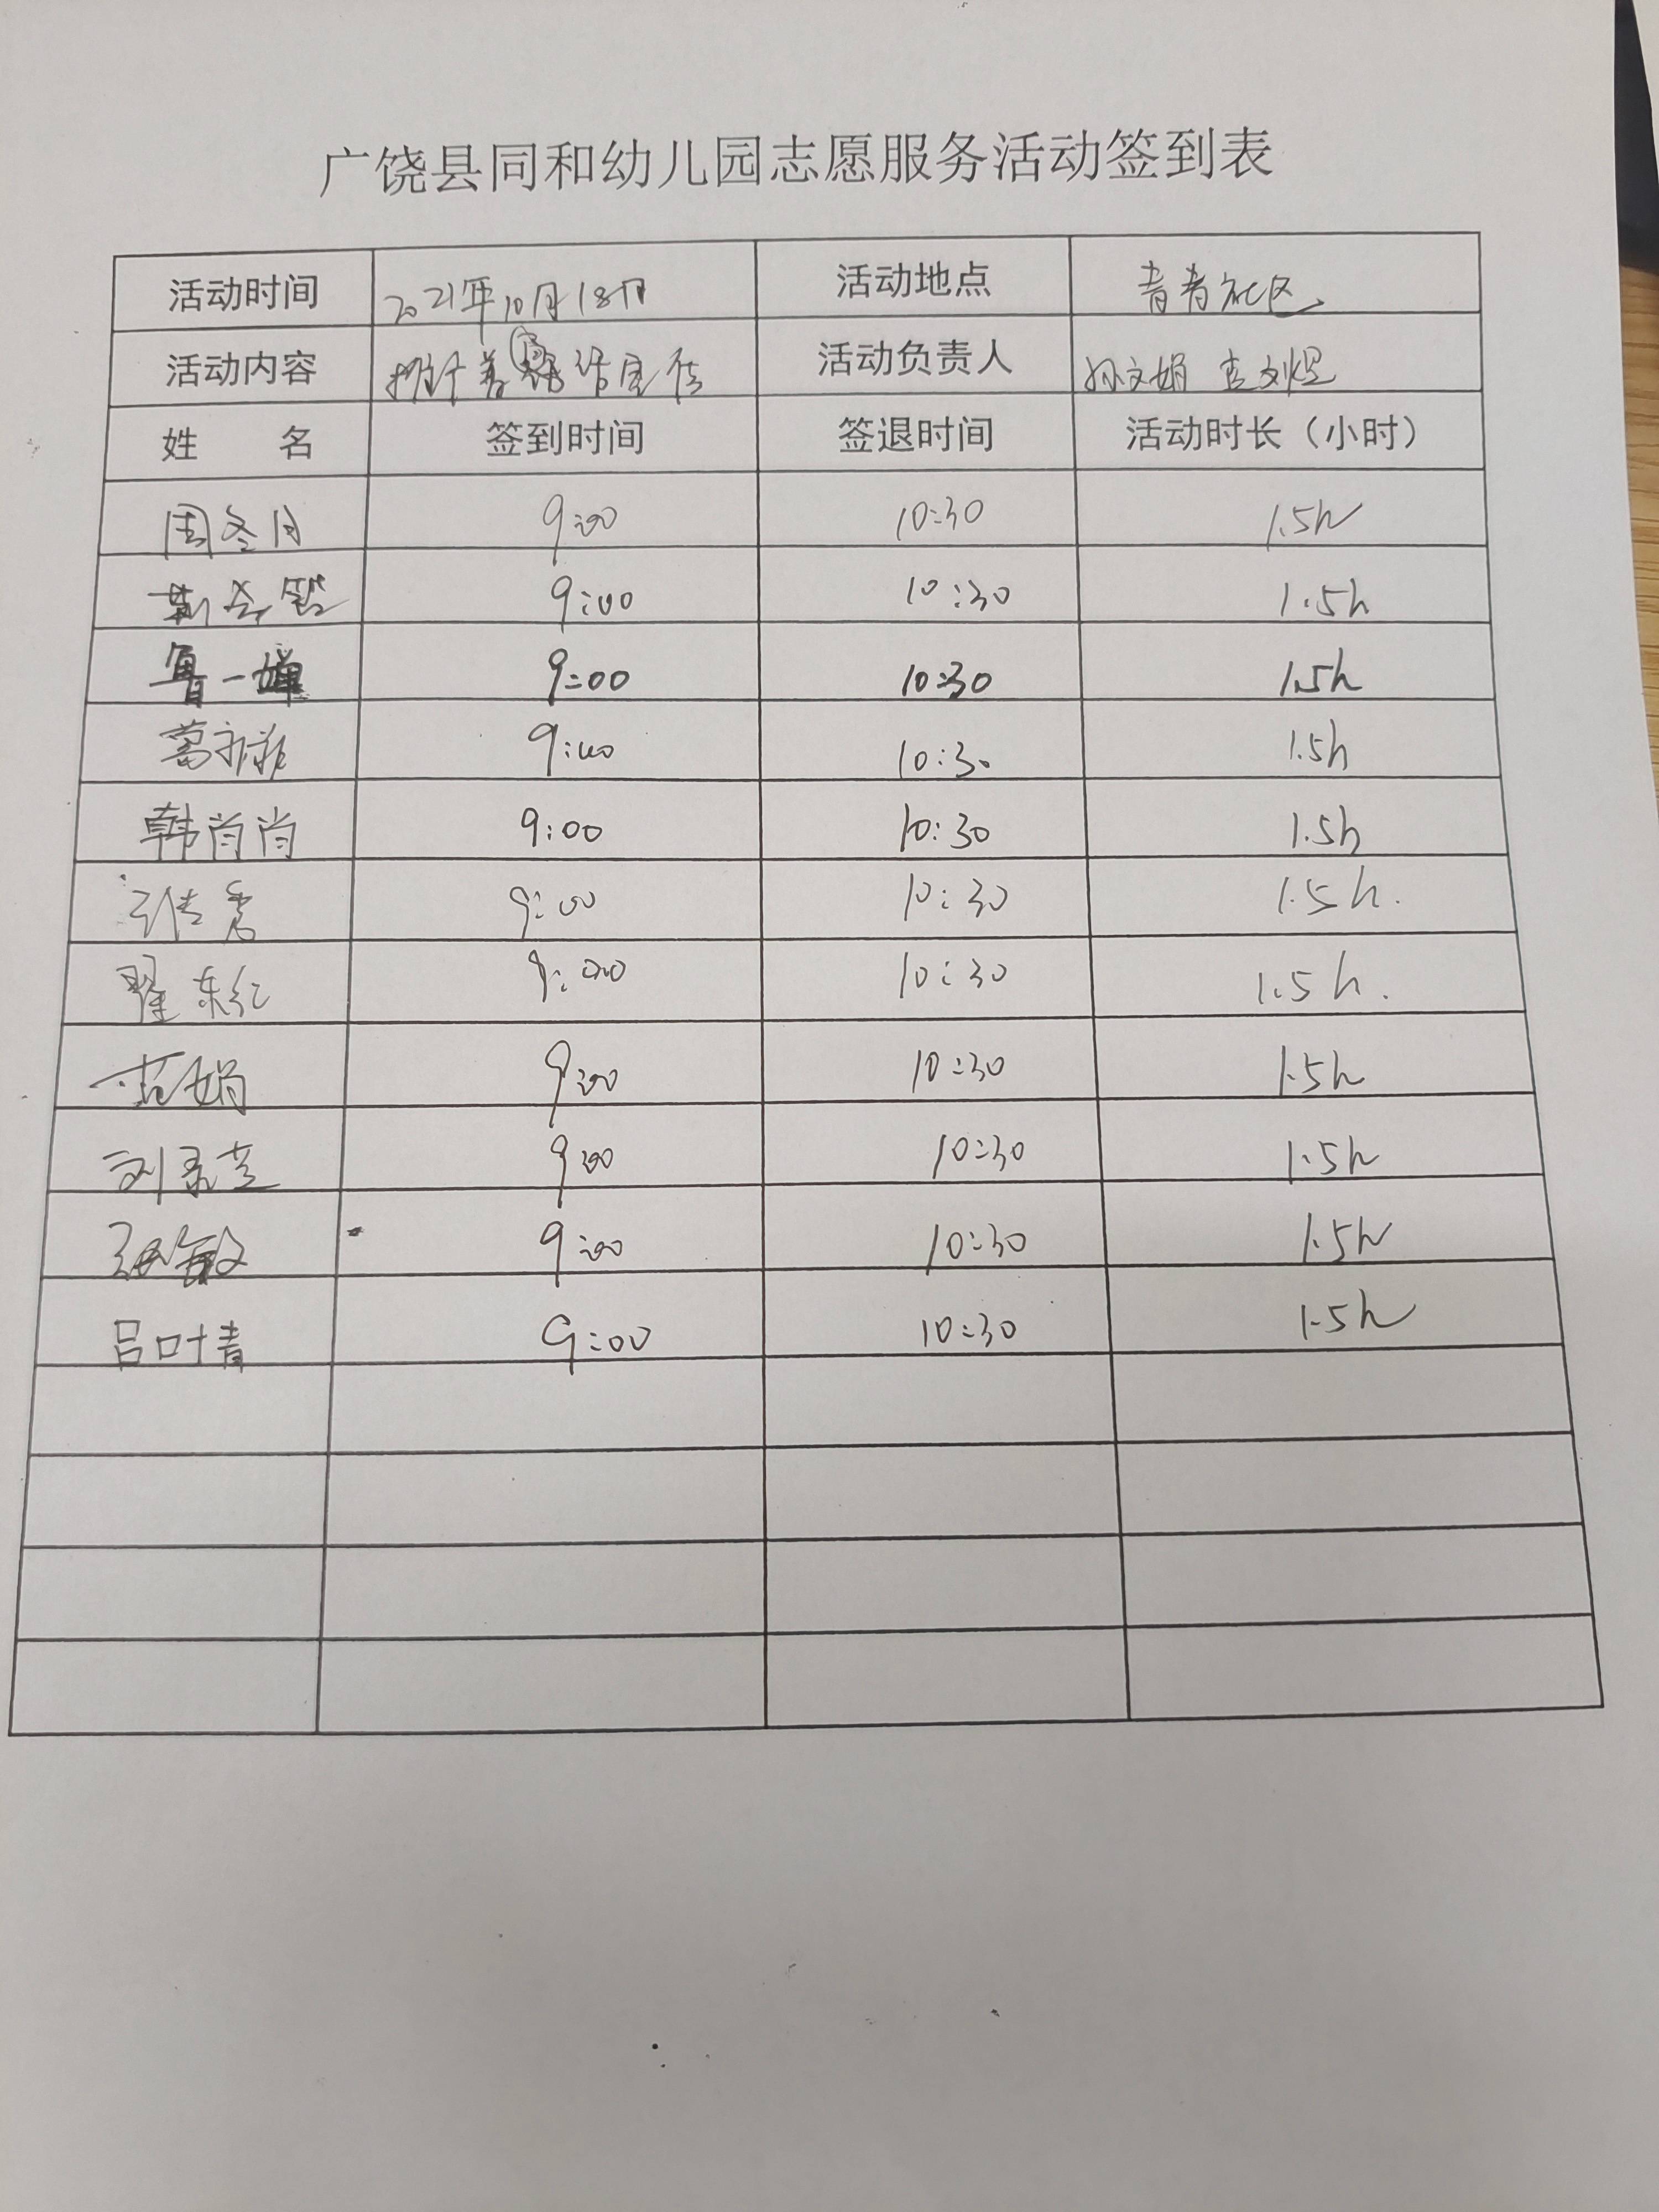 广饶县同和幼儿园志愿服务活动签到表
活动时间 2021年10月18日 活动地点 青青社区
活动内容 宣传 活动负责人 孙文娟
姓 名 签到时间 签退时间 活动时长（小时）
周冬月 9:00 10:30 1.5h
9:00 10:30 1.5h
鲁一婵 9:00 10:30 1.5h
葛 9:00 10:30 1.5h
韩肖肖 9:00 10:30 1.5h
9:00 10:30 1.5h.
翟东红 9:00 10:30 1.5h.
娟 9:00 10:30 1.5h
刘 9:00 10:30 1.5h
敏 9:00 10:30 1.5h
吕叶青 9:00 10:30 1.5h